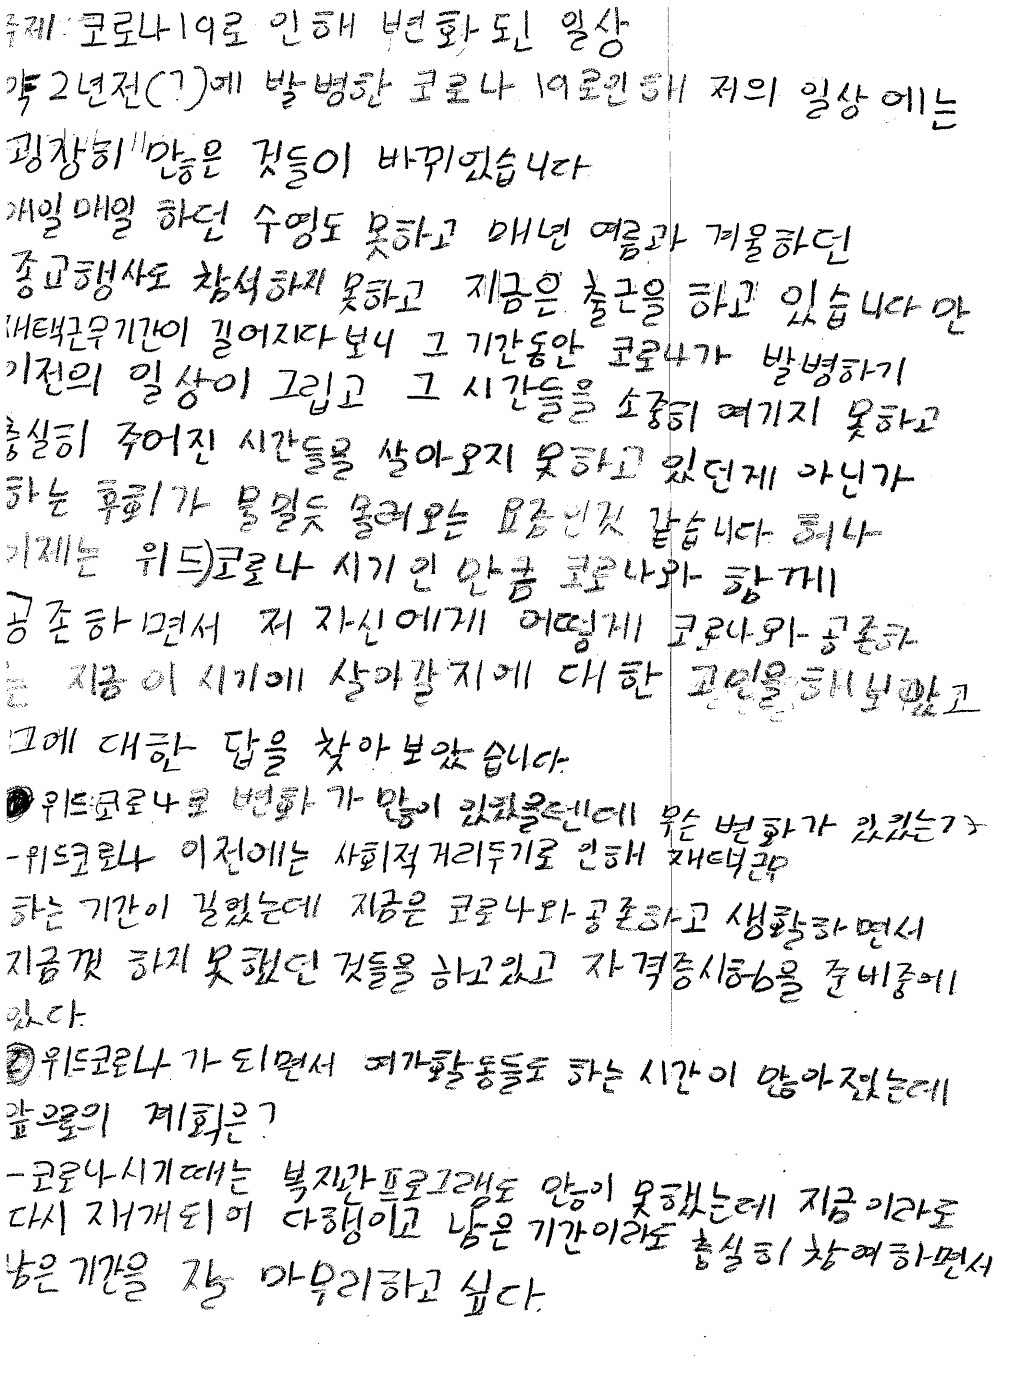 주제: 코로나19로 인해 변화 된 일상
약 2년전(?)에 발병한 코로나 19로인해 저의 일상에는
굉장히 많은 것들이 바뀌었습니다
매일매일 하던 수영도 못하고 매년 여름과 겨울하던
종교행사도 참석하지 못하고 지금은 출근을 하고 있습니다만
재택근무기간이 길어지다보니 그 기간동안 코로나가 발병하기
이전의 일상이 그립고 그 시간들을 소중히 여기지 못하고
충실히 주어진 시간들을 살아오지 못하고 있던게 아닌가
하는 후회가 물밀듯 몰려오는 요즘인것 같습니다. 허나
이제는 위드)코로나 시기인 만큼 코로나와 함께
공존하면서 저 자신에게 어떻게 코로나와 공존하
는 지금 이 시기에 살아갈지에 대한 고민을 해보았고
그에 대한 답을 찾아보았습니다.
❶위드코로나로 변화가 많이 있었을텐데 무슨 변화가 있었는가
-위드코로나 이전에는 사회적거리두기로 인해 재택근무
하는 기간이 길었는데 지금은 코로나와 공존하고 생활하면서
지금껏 하지 못했던 것들을 하고있고 자격증시험을 준비중에
있다.
②위드코로나가 되면서 여가활동들도 하는 시간이 많아졌는데
앞으로의 계획은?
-코로나시기때는 복지관프로그램도 많이 못했는데 지금이라도
다시 재개되어 다행이고 남은 기간이라도 충실히 참여하면서
남은 기간을 잘 마무리하고 싶다.